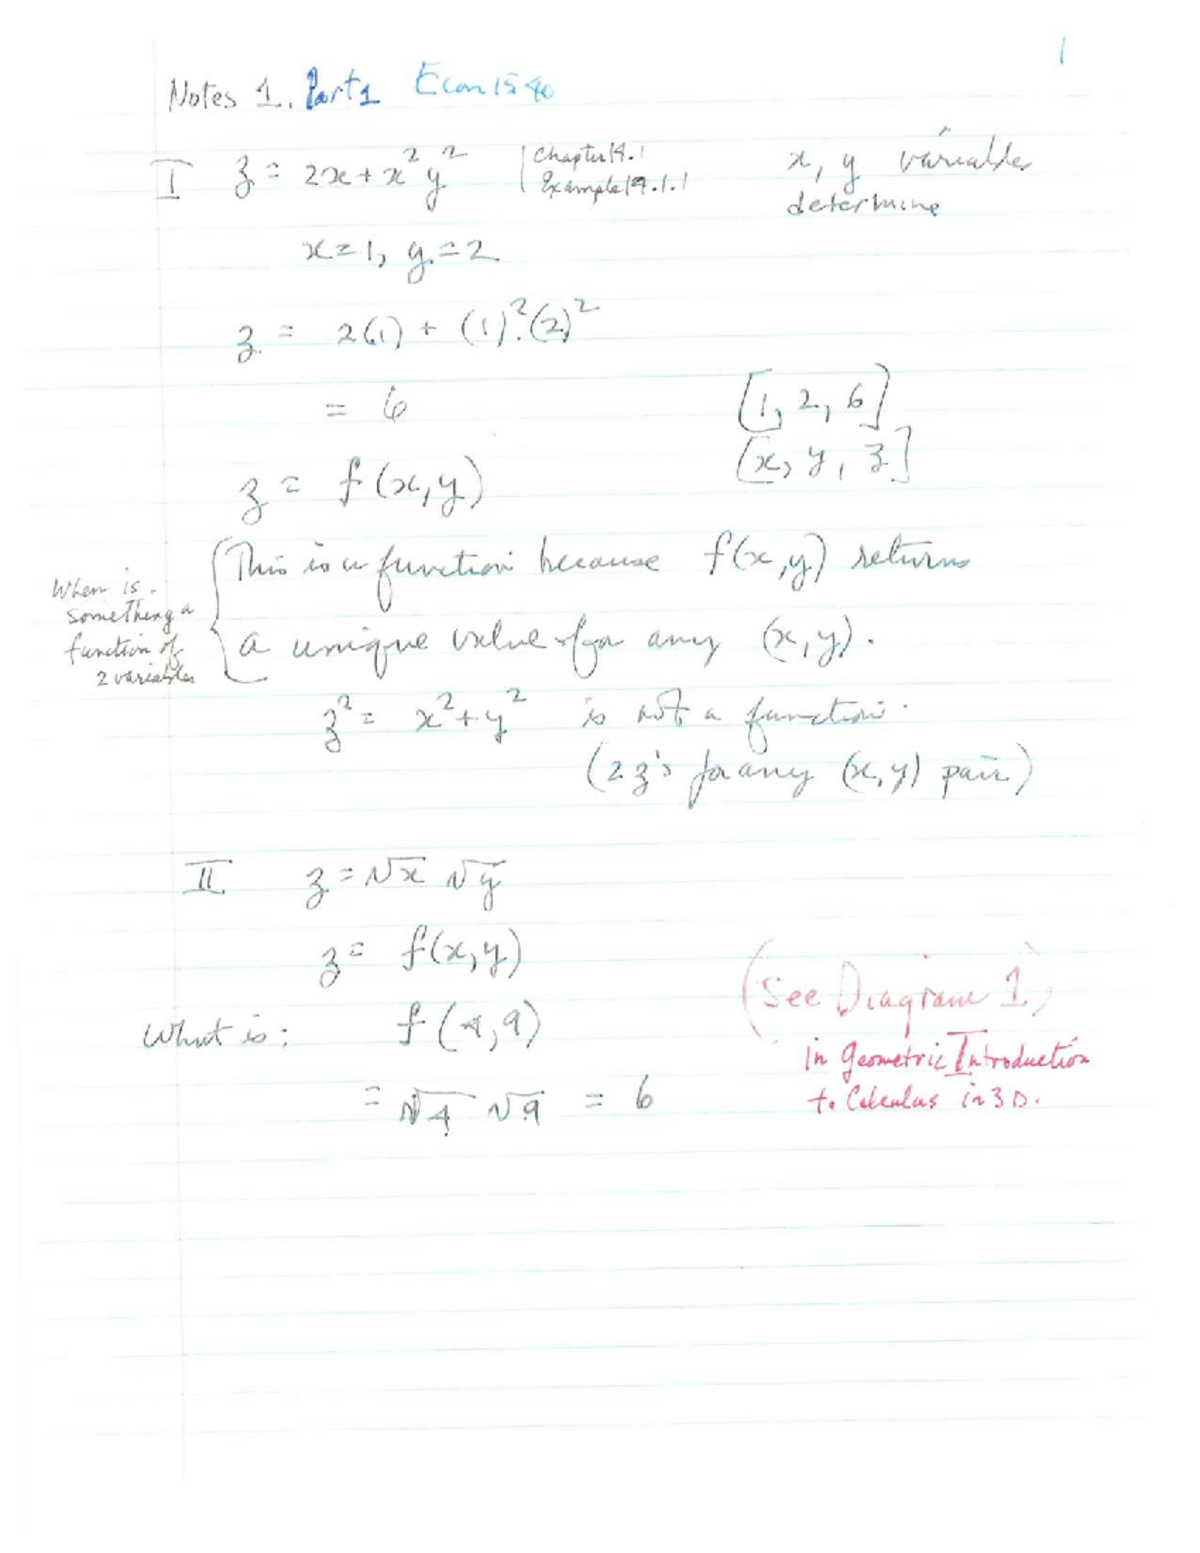 1
Notes 1. Part 1 Econ 1540
I z = 2x + x²y² | Chapter 14.1
Example 14.1.1
x, y variables
determine
x = 1, y = 2
z = 2(1) + (1)².(2)²
= 6
[1, 2, 6]
[x, y, z]
z = f(x,y)
When is
something a
function of
2 variables
This is a function because f(x,y) returns
a unique value for any (x,y).
z² = x² + y² is not a function.
(2 z's for any (x,y) pair)
II z = √x √y
z = f(x,y)
What is: f(4,9)
= √4 √9 = 6
(See Diagram 1)
in Geometric Introduction
to Calculus in 3D.